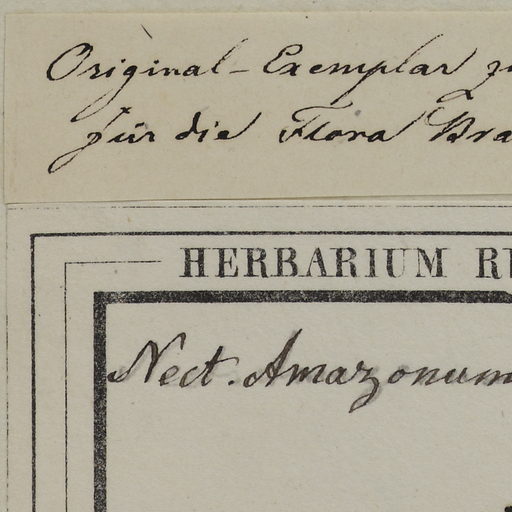 Original-Exemplar
für die Flora
HERBARIUM
Nect. Amazonum